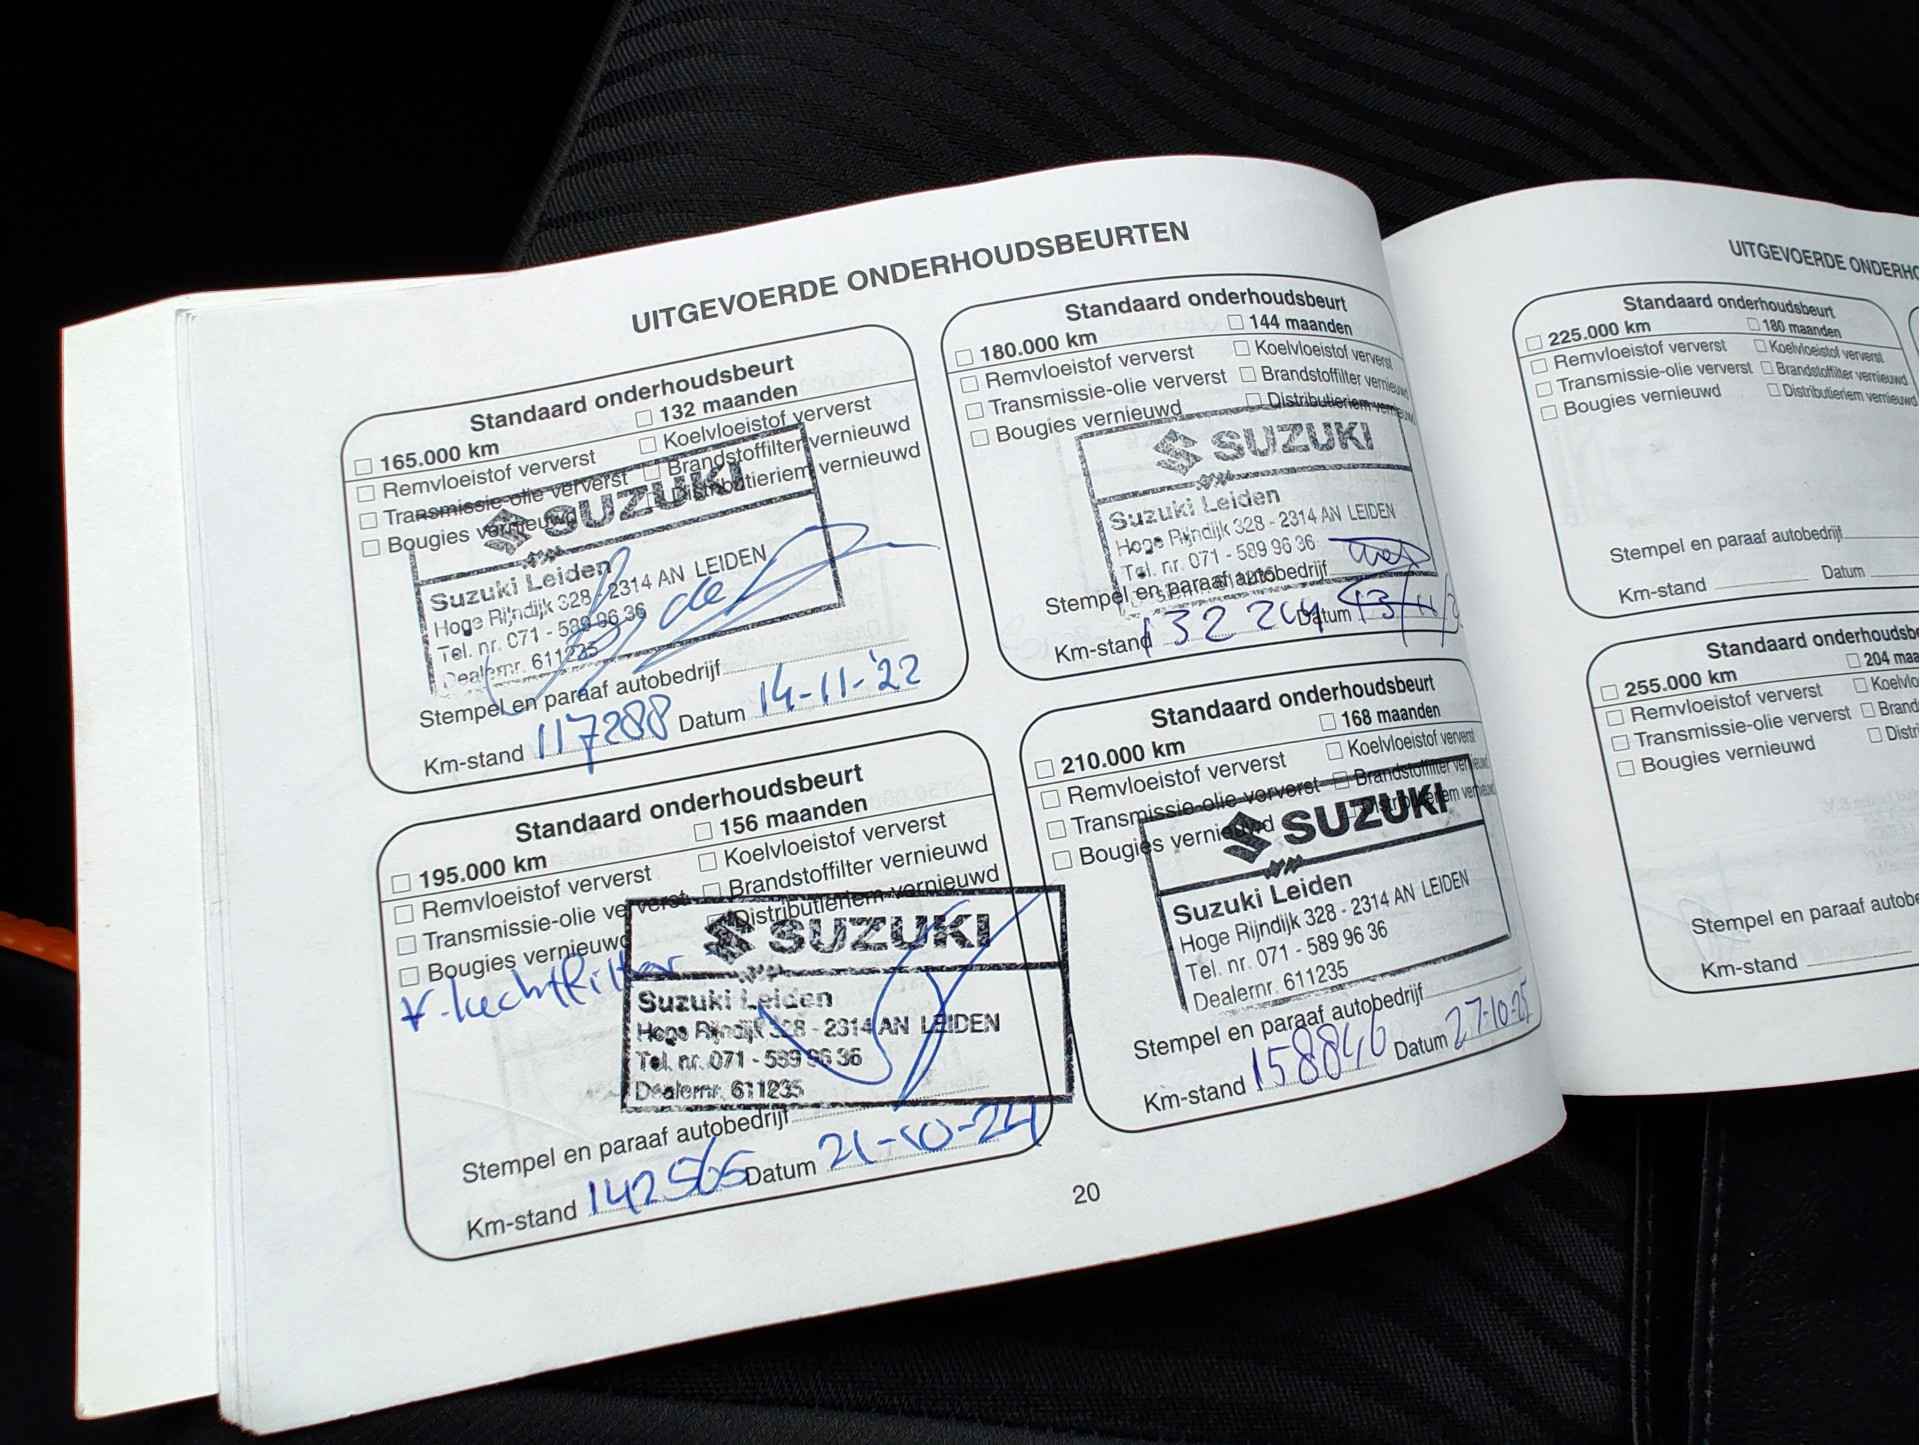 UITGEVOERDE ONDERHOUDSBEURTEN
Standaard onderhoudsbeurt
165.000 km 132 maanden
Remvloeistof ververst Koelvloeistof ververst
Transmissie-olie ververst Brandstoffilter vernieuwd
Bougies vernieuwd Distributieriem vernieuwd
SUZUKI
Suzuki Leiden
Hoge Rijndijk 328 - 2314 AN LEIDEN
Tel. nr. 071 - 589 96 36
Dealernr. 611235
Stempel en paraaf autobedrijf
Km-stand 117288 Datum 14-11-'22
Standaard onderhoudsbeurt
180.000 km 144 maanden
Remvloeistof ververst Koelvloeistof ververst
Transmissie-olie ververst Brandstoffilter vernieuwd
Bougies vernieuwd Distributieriem vernieuwd
SUZUKI
Suzuki Leiden
Hoge Rijndijk 328 - 2314 AN LEIDEN
Tel. nr. 071 - 589 96 36
Stempel en paraaf autobedrijf
Km-stand 13224 Datum 13/11/2
Standaard onderhoudsbeurt
195.000 km 156 maanden
Remvloeistof ververst Koelvloeistof ververst
Transmissie-olie ververst Brandstoffilter vernieuwd
Bougies vernieuwd Distributieriem vernieuwd
luchtfilter
SUZUKI
Suzuki Leiden
Hoge Rijndijk 328 - 2314 AN LEIDEN
Tel. nr. 071 - 589 96 36
Dealernr. 611235
Stempel en paraaf autobedrijf
Km-stand 142565 Datum 21-10-24
Standaard onderhoudsbeurt
210.000 km 168 maanden
Remvloeistof ververst Koelvloeistof ververst
Transmissie-olie ververst Brandstoffilter vernieuwd
Bougies vernieuwd Distributieriem vernieuwd
SUZUKI
Suzuki Leiden
Hoge Rijndijk 328 - 2314 AN LEIDEN
Tel. nr. 071 - 589 96 36
Dealernr. 611235
Stempel en paraaf autobedrijf
Km-stand 158846 Datum 27-10-25
20
UITGEVOERDE ONDERHO
Standaard onderhoudsbeurt
225.000 km 180 maanden
Remvloeistof ververst Koelvloeistof ververst
Transmissie-olie ververst Brandstoffilter vernieuwd
Bougies vernieuwd Distributieriem vernieuwd
Stempel en paraaf autobedrijf
Km-stand Datum
Standaard onderhoudsbe
255.000 km 204 maa
Remvloeistof ververst Koelvlo
Transmissie-olie ververst Brand
Bougies vernieuwd Distri
Stempel en paraaf autobe
Km-stand